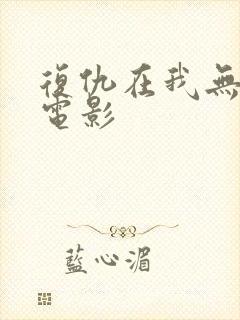 復仇在我無
電影
藍心湄